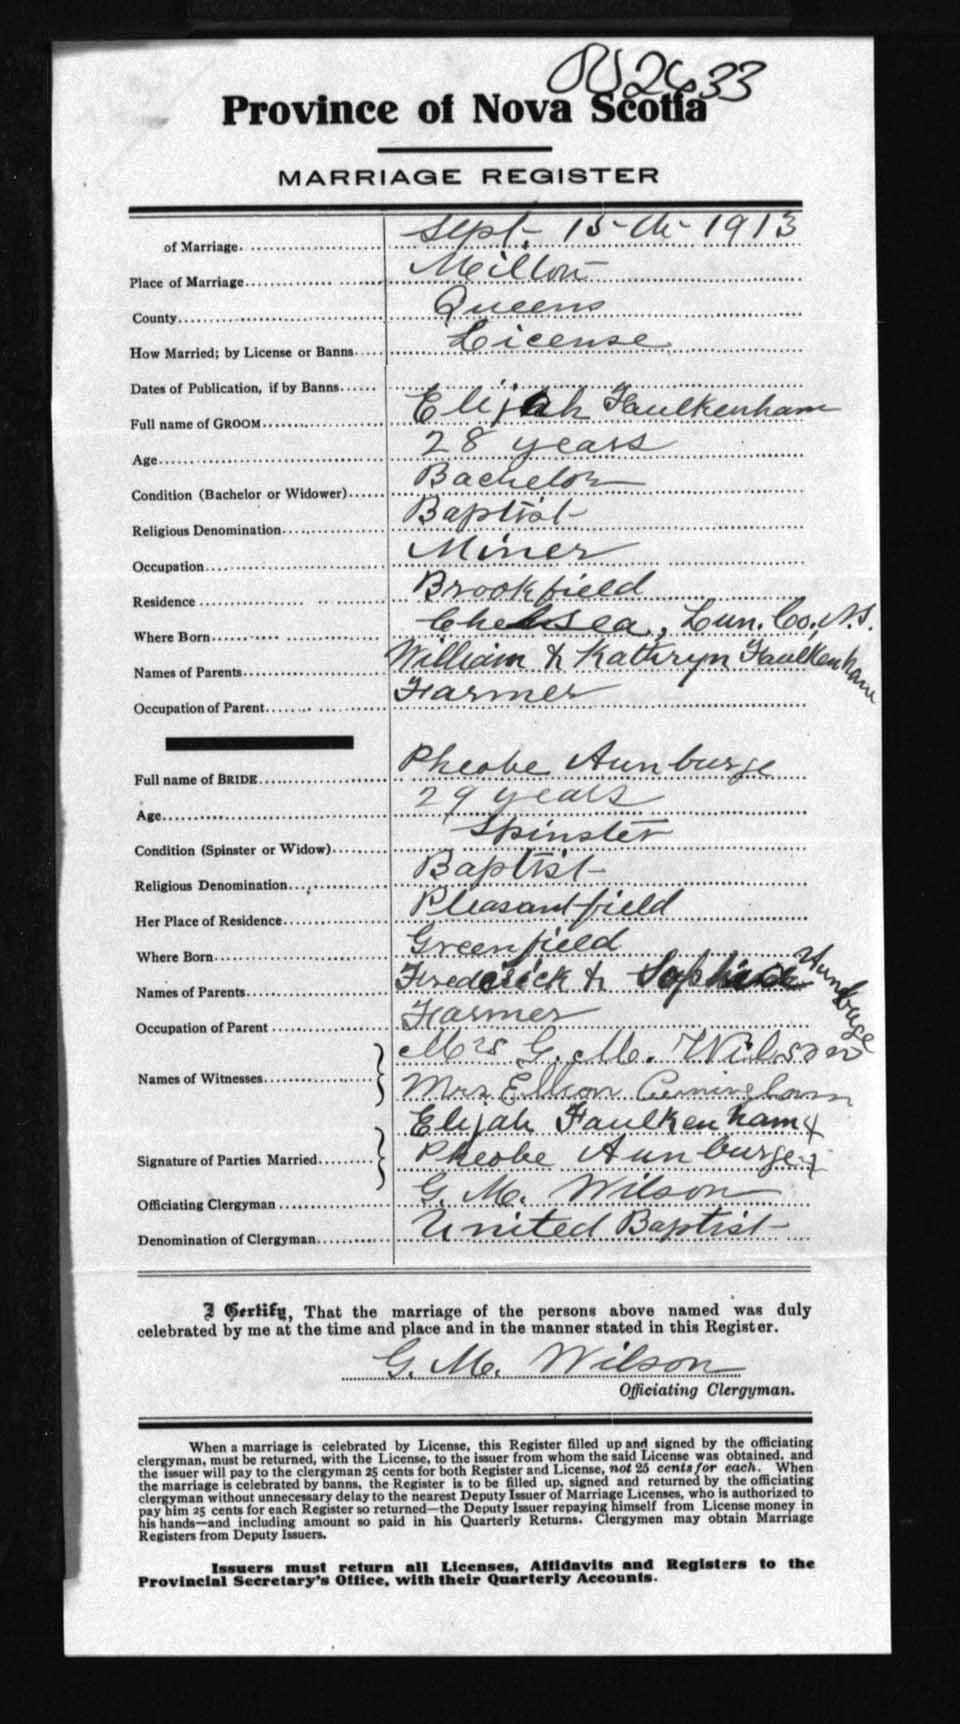 2633
Province of Nova Scotia
MARRIAGE REGISTER
of Marriage Sept. 15th 1913
Place of Marriage Milton
County Queens
How Married; by License or Banns License
Dates of Publication, if by Banns
Full name of GROOM Elijah Faulkenham
Age 28 years
Condition (Bachelor or Widower) Bachelor
Religious Denomination Baptist
Occupation Miner
Residence Brookfield
Where Born Chelsea, Lun. Co., N.S.
Names of Parents William & Kathryn Faulkenham
Occupation of Parent Farmer
Full name of BRIDE Pheobe Aunburge
Age 29 years
Condition (Spinster or Widow) Spinster
Religious Denomination Baptist
Her Place of Residence Pleasantfield
Where Born Greenfield
Names of Parents Frederick & Aunburge
Occupation of Parent Farmer
Names of Witnesses Mrs G. M. Wilson
Mrs.
Elijah Faulkenham
Signature of Parties Married Pheobe Aunburge
Officiating Clergyman G. M. Wilson
Denomination of Clergyman United Baptist
I Certify, That the marriage of the persons above named was duly
celebrated by me at the time and place and in the manner stated in this Register.
G. M. Wilson
Officiating Clergyman.
When a marriage is celebrated by License, this Register filled up and signed by the officiating
clergyman, must be returned, with the License, to the issuer from whom the said License was obtained, and
the issuer will pay to the clergyman 25 cents for both Register and License, not 25 cents for each. When
the marriage is celebrated by banns, the Register is to be filled up, signed and returned by the officiating
clergyman without unnecessary delay to the nearest Deputy Issuer of Marriage Licenses, who is authorized to
pay him 25 cents for each Register so returned—the Deputy Issuer repaying himself from License money in
his hands—and including amount so paid in his Quarterly Returns. Clergymen may obtain Marriage
Registers from Deputy Issuers.
Issuers must return all Licenses, Affidavits and Registers to the
Provincial Secretary's Office, with their Quarterly Accounts.